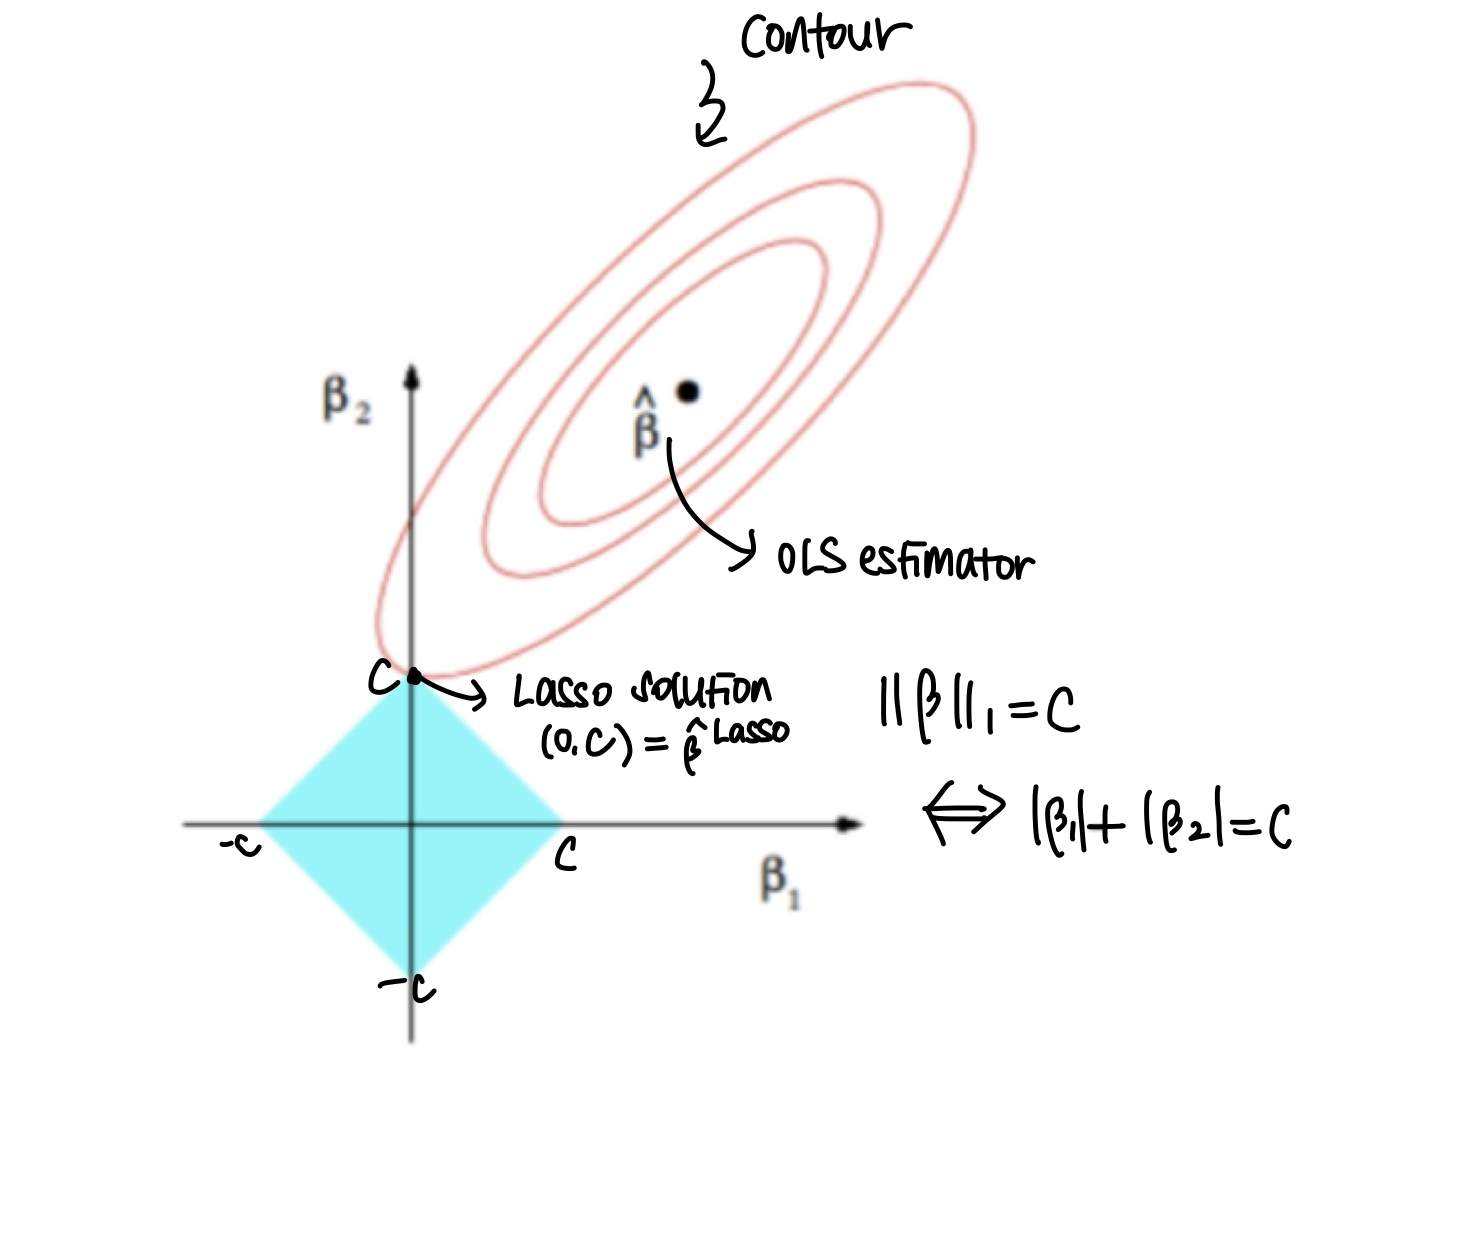 Contour
β₂
β̂
OLS estimator
C
Lasso solution
(0, C) = β̂ ᴸᵃˢˢᵒ
||β||₁ = C
⟺ |β₁| + |β₂| = C
-C
C
β₁
-C